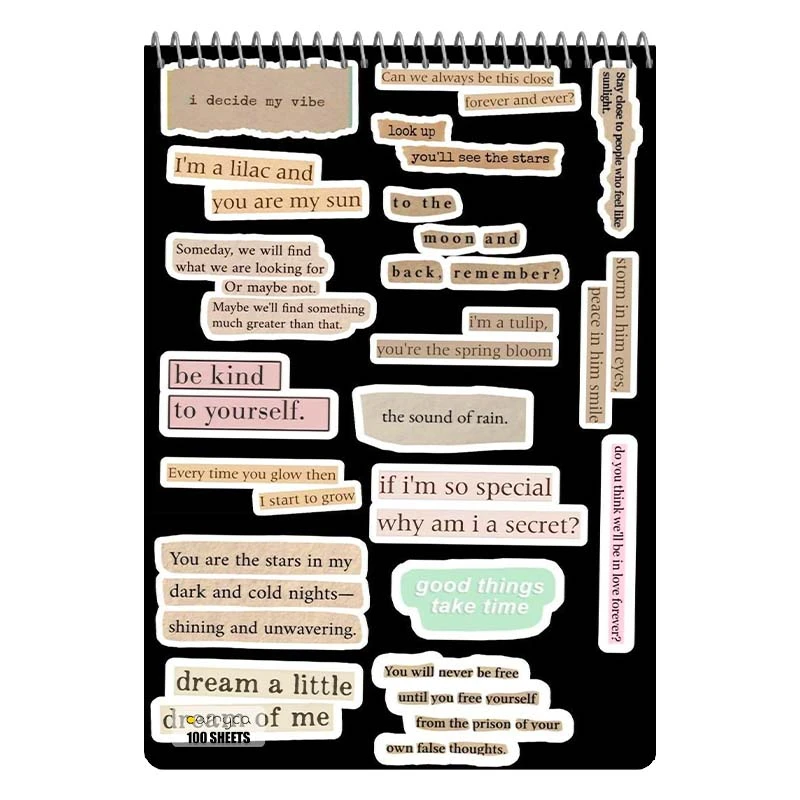 i decide my vibe
I'm a lilac and
you are my sun
Someday, we will find
what we are looking for
Or maybe not.
Maybe we'll find something
much greater than that.
be kind
to yourself.
Every time you glow then
I start to grow
You are the stars in my
dark and cold nights—
shining and unwavering.
dream a little
dream of me
100 SHEETS
Can we always be this close
forever and ever?
look up
you'll see the stars
to the
moon and
back, remember?
i'm a tulip,
you're the spring bloom
the sound of rain.
if i'm so special
why am i a secret?
good things
take time
You will never be free
until you free yourself
from the prison of your
own false thoughts.
Stay close to people who feel like
sunlight.
storm in him eyes,
peace in him smile
do you think we'll be in love forever?